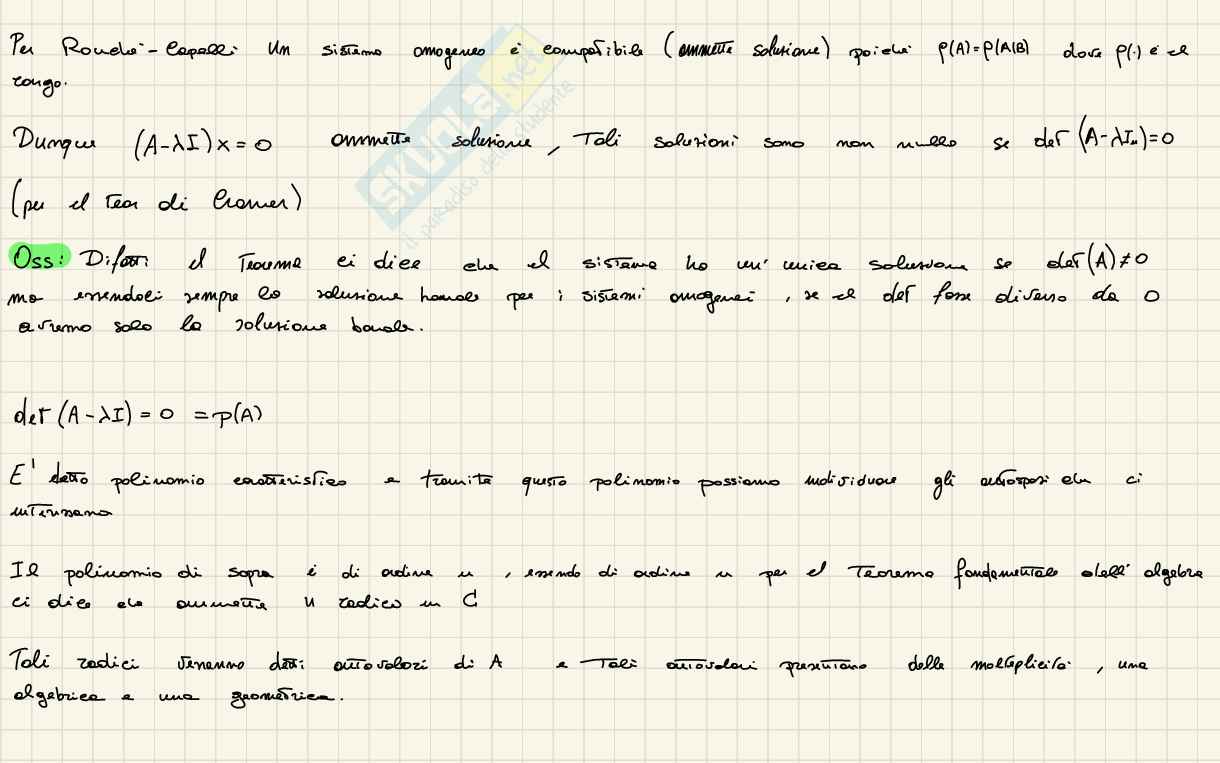 Per Rouché-Capelli un sistema omogeneo è compatibile (ammette soluzione) poiché ρ(A)=ρ(A|B) dove ρ(·) è il
rango.
Dunque (A-λI)x=0 ammette soluzione, Tali soluzioni sono non nulle se det(A-λIₙ)=0
(per il teor di Cramer)
Oss: Difatti il Teorema ci dice che il sistema ha un'unica soluzione se det(A)≠0
ma essendoci sempre la soluzione banale per i sistemi omogenei, se il det fosse diverso da 0
avremo solo la soluzione banale.
det(A-λI)=0 =p(A)
E' detto polinomio caratteristico e tramite questo polinomio possiamo individuare gli autospazi che ci
interessano
Il polinomio di sopra è di ordine n, essendo di ordine n per il Teorema fondamentale dell'algebra
ci dice che ammette n radici in C
Tali radici verranno detti autovalori di A e Tali autovalori presentano delle molteplicità, una
algebrica e una geometrica.
SKUOLA.net
il paradiso dello studente